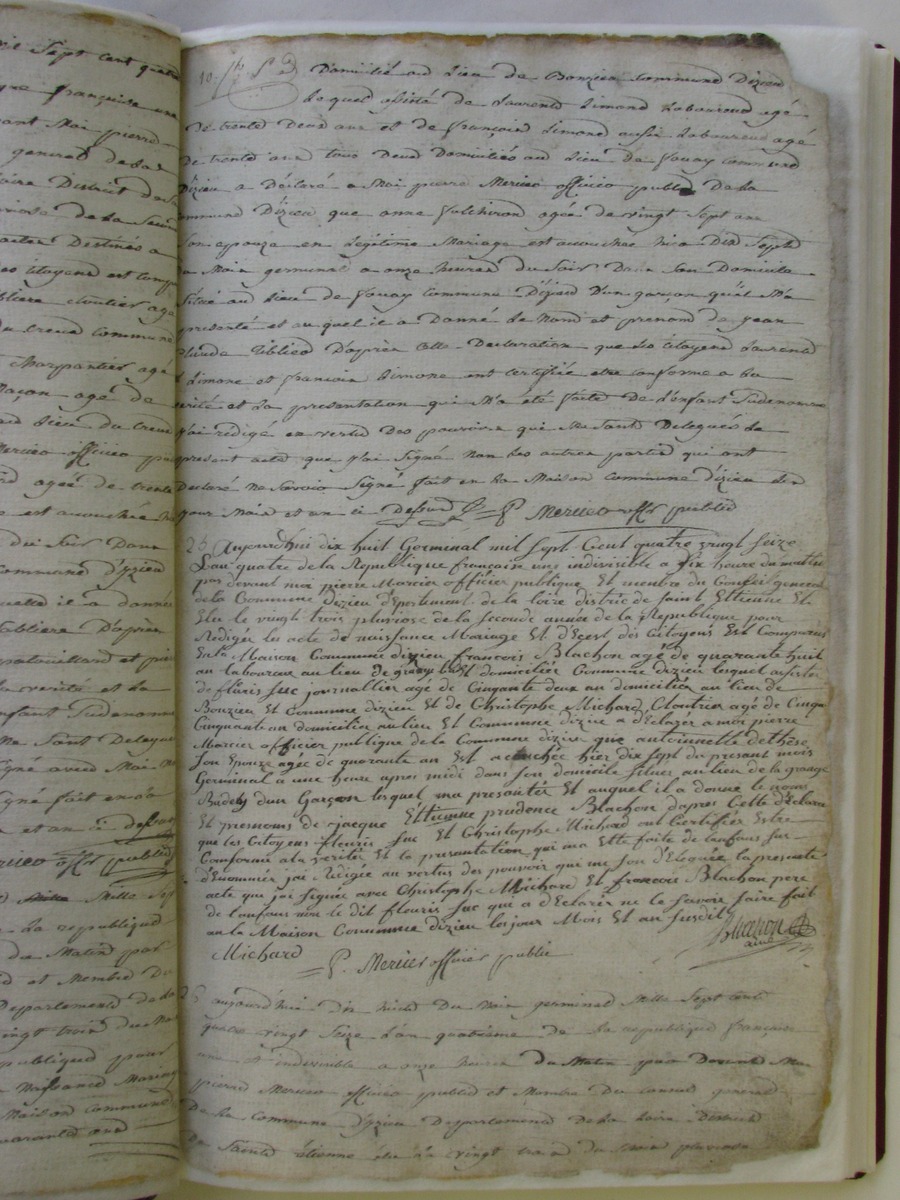 Sept Cent quatre
que françoise une
Moi pierre
general de la
District de
de la Secon
Destinés a
Citoyens est comp
cloutier agé
du creux commune
Charpantier agé
Maçon agé de
lieu du creux
Mercier officier pu
agée de trente
est accouchée
du Soir Dans
commune d'yzieu
il a donnée
D'après
et pie
la verité et la
enfant Sudenommé
Me Sont Delegu
signé avec Moi
signé fait en la
et an ci dessus
Mercier offer publicd
Mille Sep
La republique
du Matin par
et Membre Du
Departement de la
vingt trois du Moi
republique pour
Naissance Mariag
Maison commune
quarante ans
10. Domicilié au Lieu de Bonzieu Commune Dizieu
Lequel assisté de Laurent Simond Laboureur agé
De trente Deux ans et de françois Simond aussi Laboureur agé
De trente ans tous Deux Domiciliés au Lieu de fonay commune
Dizieu a Déclaré a Moi pierre Mercier officier public De La
commune Dizieu que anne fulchiron agée de vingt Sept ans
Son epouze en Legitime Mariage est accouchée hier Dix Sept
du Mois germinal a onze heures du Soir Dans Son Domicile
Situé au Lieu de fonay Commune Dizieu D'un garçon qu'il M'a
presenté et au quel il a Donné Le Nom et prenom de jean
Claude D'après Cette Declaration que Les citoyens Laurent
Simone et françois Simone ont certifiée etre conforme a La
verité et La presentation qui M'a été faite De L'enfant Sudenommé
j'ai redigé en vertu Des pouvoirs qui Me Sont Delegués Le
present acte que j'ai Signé non Les autres partis qui ont
Declaré Ne Savoir Signé fait en La Maison Commune d'izieu Les
jour Mois et an ci Dessus P Mercier offer publicd
25 Aujourd'hui dix huit Germinal mil sept Cent quatre vingt seize
L'an quatre de la Republique francaise une indivisible a dix heure du matin
par devant moi pierre Marcier officier publique Et membre du Conseil general
de la Commune dizieu departement de la loire distric de saint Ettienne Et
Elu le vingt trois pluviose de la seconde année de la Republique pour
Rediger les acte de naissance Mariage Et d'Eces des Citoyens Est Comparus
En la Maison Commune dizieu francois Blachon agé de quarante huit
an laboureur au lieu de domicilié Commune dizieu lequel assister
de fluris Suc journallier agé de Cinquante deux an domicilié au lieu de
Bonzieu Et Commune dizieu Et de Christophe Michard Cloutrier agé de Cinqu
Cinquante an domicilié au lieu Et Commune dizieu a d'Eclarer a moi pierre
Marcier officier publique de la Commune dizieu que antoinette dethèse
Son Epouze agee de quarante an Est acouchée hier dix sept du presant mois
Germinal a une heure apres midi dans son domicile situer au lieu de la grange
Budet dun Garçon lesquel ma presanter Et auquel il a donne le noms
Et prenoms de jacque Ettienne prudence Blachon dapres Cette d'Eclara
que les Citoyens fleuris Suc Et Christophe Michard ont Certifier Estre
Comforme a la verité Et la presantation qui ma Ette faite de lenfans sus
d'Enommée jai Redigée au vertus des pouvoir qui me son d'Eleguée la presante
acte que jai signée avec Christophe Michard Et francois Blachon pere
de lenfans non le dit fleuris suc qui a d'Eclarer ne le savoir faire fait
au la Maison Commune dizieu les jour Mois Et an susdit
Michard P. Mercier officier public
aujourd'hui Dix huit Du Mois germinal Mille Sept cent
quatre vingt Seize L'an quatrième de La republique françoise
une et indivisible a onze heures Du Matin par Devant Moi
pierre Mercier officier public et Membre Du conseil general
De La Commune D'yzieu Departement De La Loire District
De Sainte etienne elu Le vingt trois du Mois pluviose